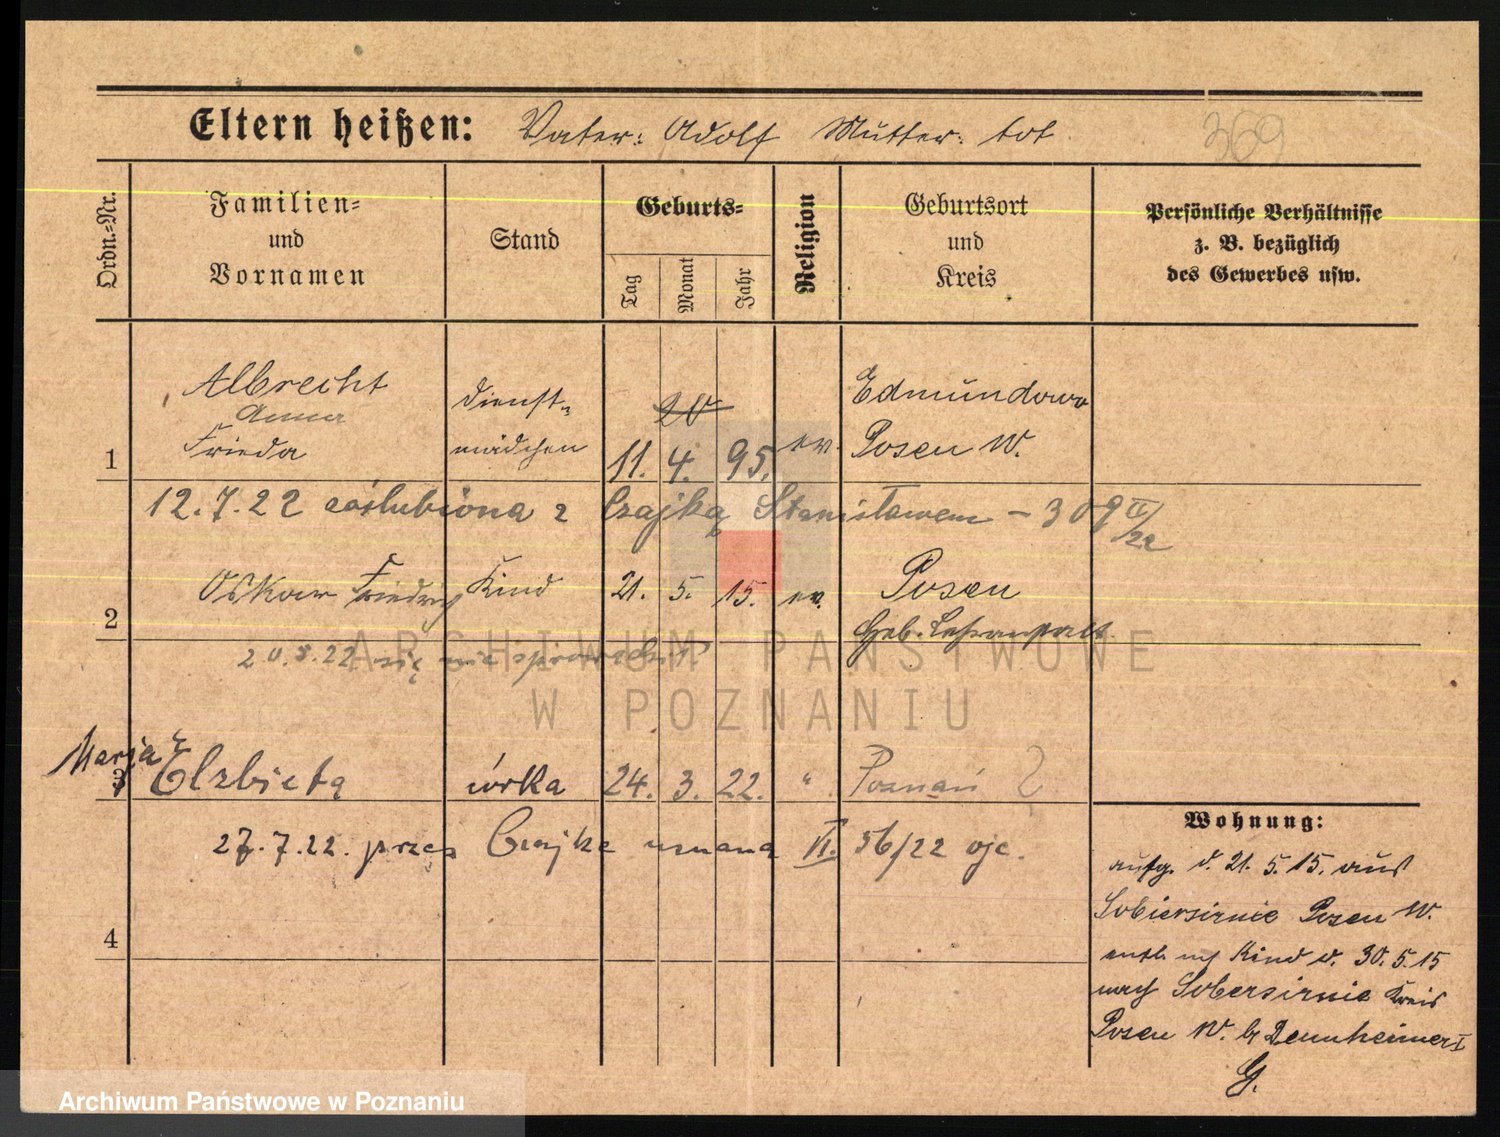 Eltern heißen: Vater: Adolf Mutter: tot
369
Ordn.-Nr.
Familien-
und
Vornamen
Stand
Geburts-
Tag
Monat
Jahr
Religion
Geburtsort
und
Kreis
Persönliche Verhältnisse
z. B. bezüglich
des Gewerbes usw.
1
Albrecht
Anna
Frieda
Dienst-
mädchen
20
11. 4. 95.
ev.
Edmundowo
Posen W.
12.7.22 zaślubiona z Czajką Stanisławem - 309 IV/22
2
Oskar Friedrich
Kind
21. 5. 15.
ev.
Posen
Geb. Lehranstalt.
20.8.22 się nie sprowadził
3
Marja
Elzbieta
córka
24. 3. 22.
"
Poznań
27.7.22. przez Czajkę uznana VI. 56/22
4
Wohnung:
aufg. d. 21. 5. 15. aus
Sobiersirnie Posen W.
entl. mit Kind d. 30. 5. 15
nach Sobersirnie Kreis
Posen W. b. Dennheimer I
G.
ARCHIWUM PAŃSTWOWE
W POZNANIU
Archiwum Państwowe w Poznaniu